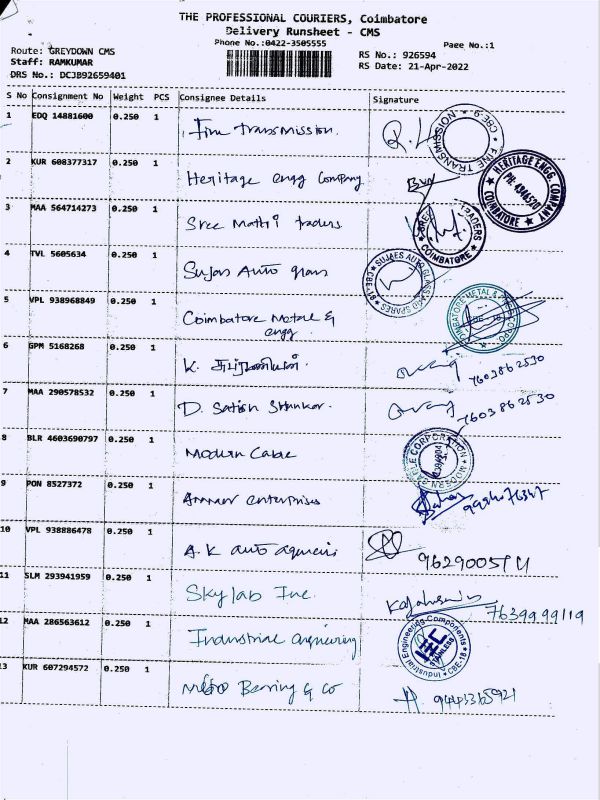 THE PROFESSIONAL COURIERS, Coimbatore
Delivery Runsheet - CMS
Phone No.:0422-3505555
Page No.:1
Route: GREYDOWN CMS
Staff: RAMKUMAR
DRS No.: DCJB92659401
RS No.: 926594
RS Date: 21-Apr-2022
S No Consignment No Weight PCS Consignee Details Signature
1 EDQ 14881600 0.250 1 Fine transmission.
FINE TRANSMISSION CBE-9
2 KUR 608377317 0.250 1 Heritage engg Company
HERITAGE ENGG COMPANY COIMBATORE
3 MAA 564714273 0.250 1 Sree Mathi traders
SREE TRADERS COIMBATORE
4 TVL 5605634 0.250 1 Sujas Auto glass
SUJAES AUTO GLASS AND SPARES
5 VPL 938968849 0.250 1 Coimbatore Metal &
engg
COIMBATORE METAL &
6 GPM 5168268 0.250 1 K.
7603862530
7 MAA 290578532 0.250 1 D. Satish Shankar.
7603862530
8 BLR 4603690797 0.250 1 Modern Cable
MODERN CABLE CORPORATION
9 PON 8527372 0.250 1 enterprises
10 VPL 938886478 0.250 1 A.K auto agencies
11 SLM 293941959 0.250 1 Skylab Inc.
7639999119
12 MAA 286563612 0.250 1 Industrial engineering
Industrial Engineering Components CBE-18
13 KUR 607294572 0.250 1 Metro Bearing & Co